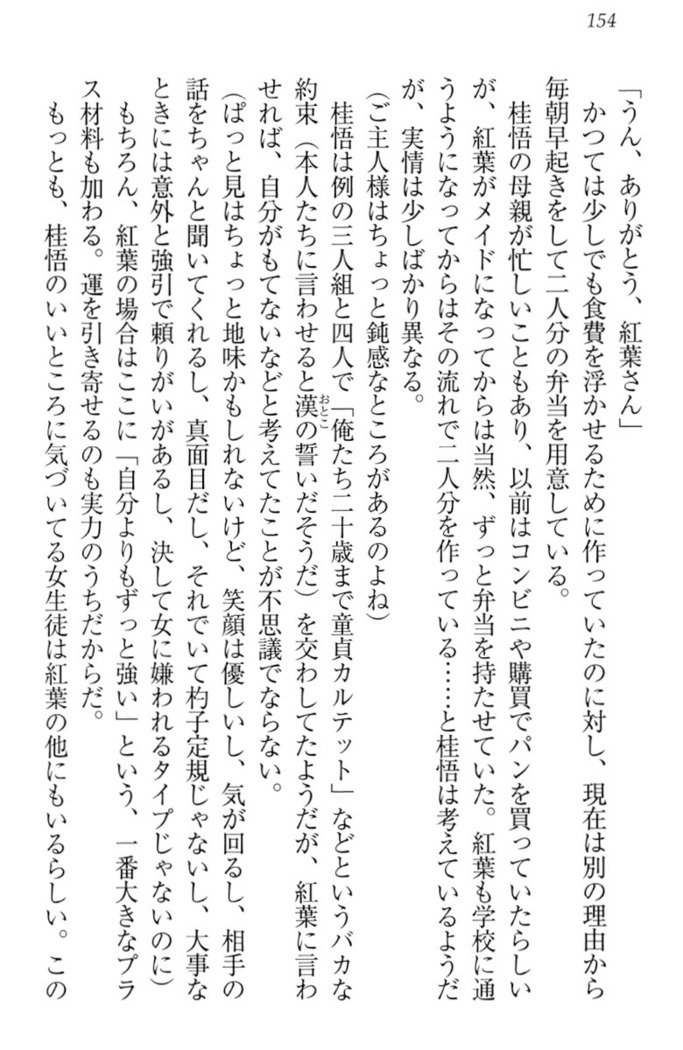 154
「うん、ありがとう、紅葉さん」
かつては少しでも食費を浮かせるために作っていたのに対し、現在は別の理由から
毎朝早起きをして二人分の弁当を用意している。
桂悟の母親が忙しいこともあり、以前はコンビニや購買でパンを買っていたらしい
が、紅葉がメイドになってからは当然、ずっと弁当を持たせていた。紅葉も学校に通
うようになってからはその流れで二人分を作っている……と桂悟は考えているようだ
が、実情は少しばかり異なる。
(ご主人様はちょっと鈍感なところがあるのよね)
桂悟は例の三人組と四人で「俺たち二十歳まで童貞カルテット」などというバカな
約束(本人たちに言わせると漢の誓いだそうだ)を交わしてたようだが、紅葉に言わ
おとこ
せれば、自分がもてないなどと考えてたことが不思議でならない。
(ぱっと見はちょっと地味かもしれないけど、笑顔は優しいし、気が回るし、相手の
話をちゃんと聞いてくれるし、真面目だし、それでいて杓子定規じゃないし、大事な
ときには意外と強引で頼りがいがあるし、決して女に嫌われるタイプじゃないのに)
もちろん、紅葉の場合はここに「自分よりもずっと強い」という、一番大きなプラ
ス材料も加わる。運を引き寄せるのも実力のうちだからだ。
もっとも、桂悟のいいところに気づいてる女生徒は紅葉の他にもいるらしい。この